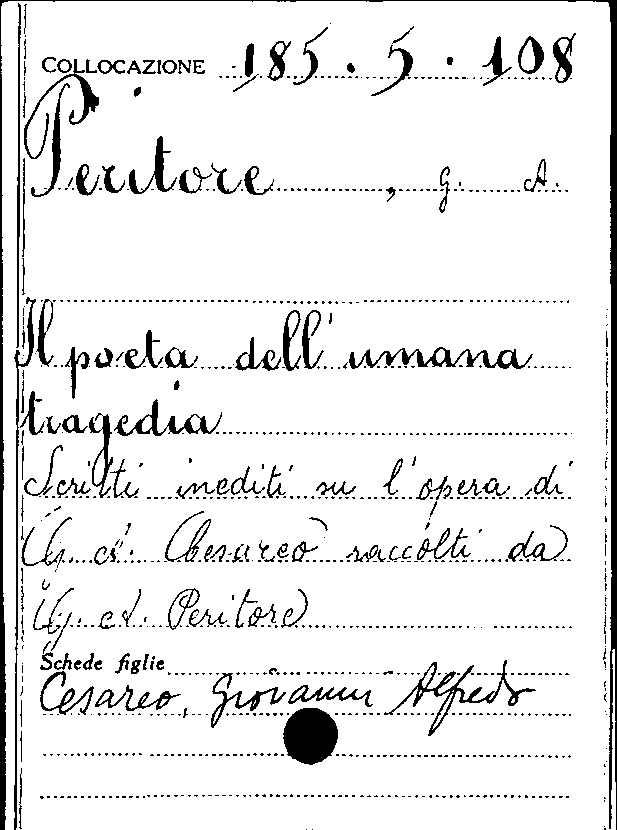 COLLOCAZIONE 185.5.108
Peritore, G. A.
Il poeta dell'umana
tragedia
Scritti inediti su l'opera di
G. A. Cesareo raccolti da
G. A. Peritore
Schede figlie
Cesareo, Giovanni Alfredo